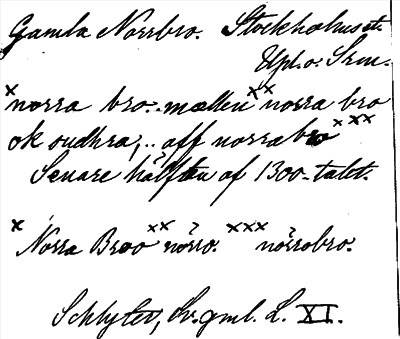 Gamla Norrbro. Stockholmset.
Upl. o. Srm.
× norra bro.. mællen ×× norra bro
ok sudhra;.. aff norrabro ×××
Senare hälften af 1300-talet.
× Norra Broo ×× nörro. ××× nörrobro.
Schlyter, Sv. gml. L. XI.